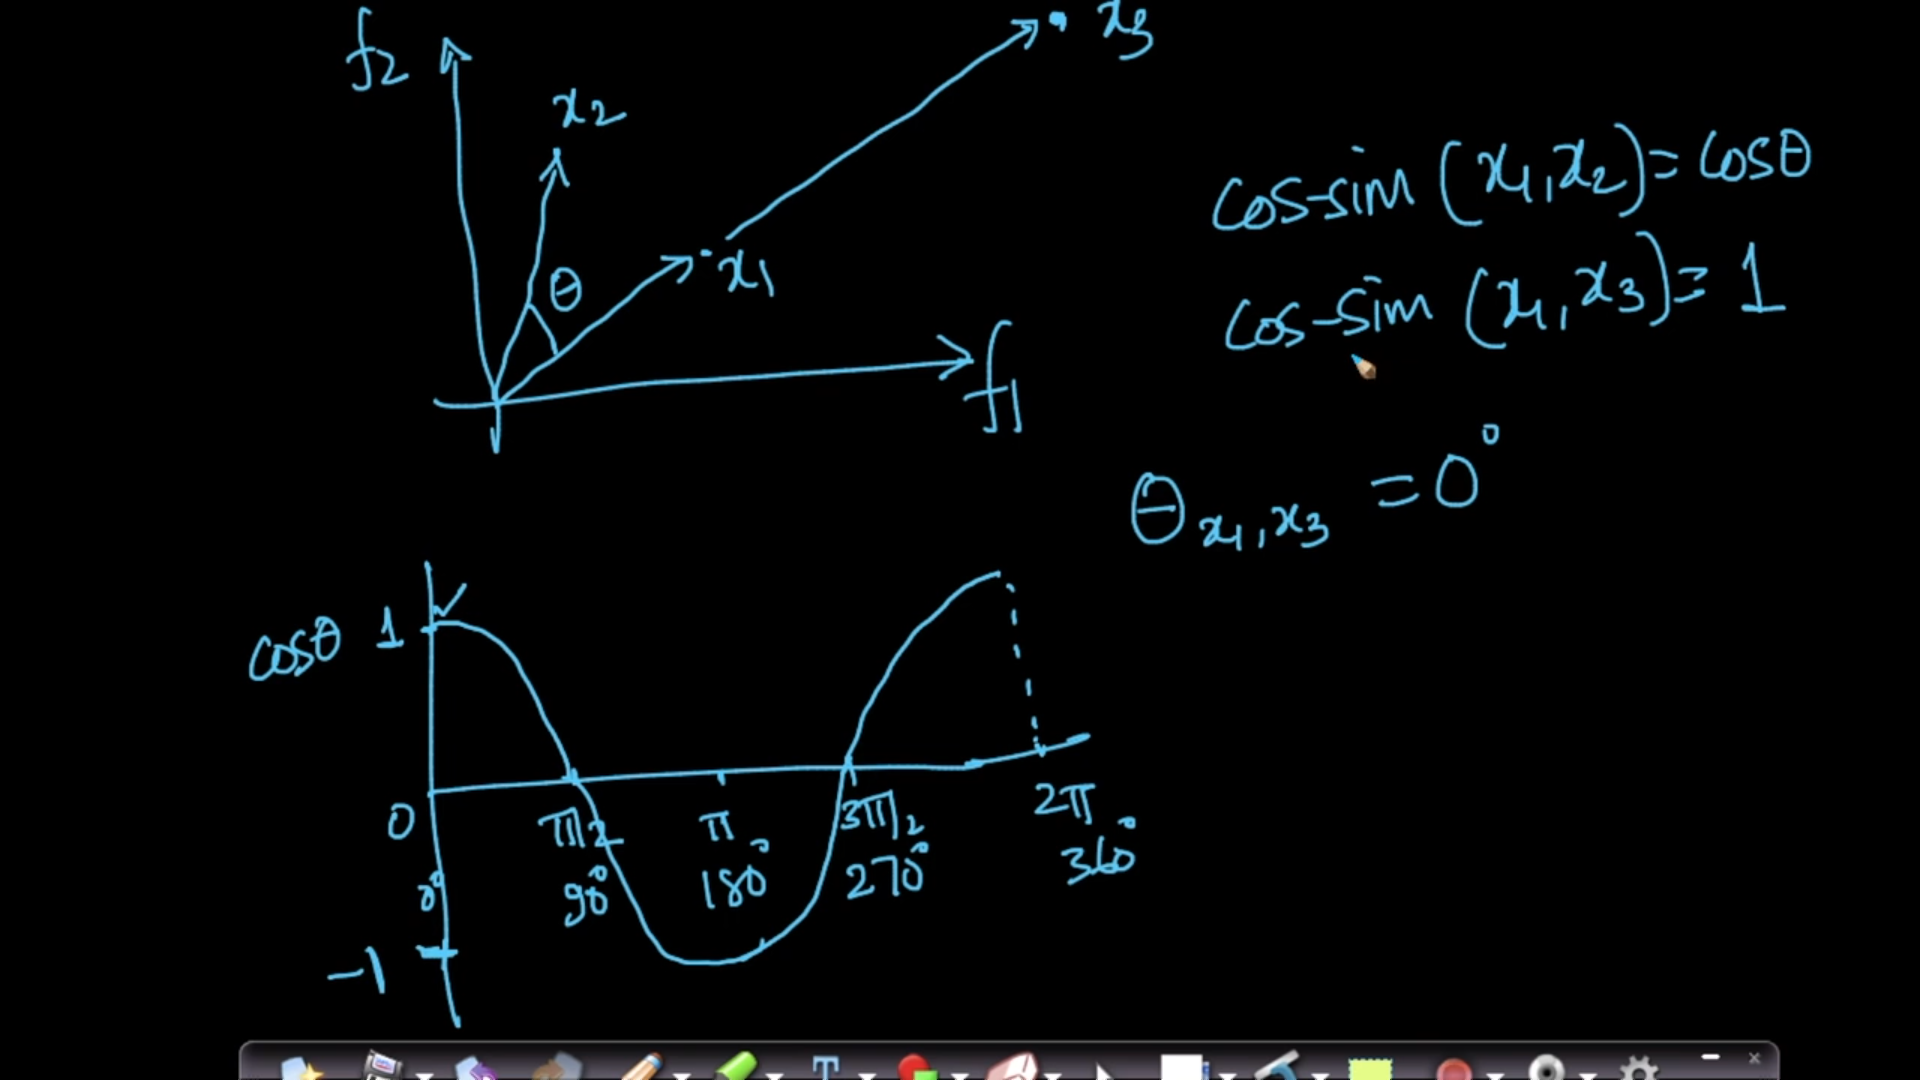 f2
x2
x3
θ
x1
f1
cos-sim (x1,x2) = cosθ
cos-sim (x1,x3) = 1
θx1,x3 = 0°
cosθ 1
0
π/2 π 3π/2 2π
0° 90° 180° 270° 360°
-1
T